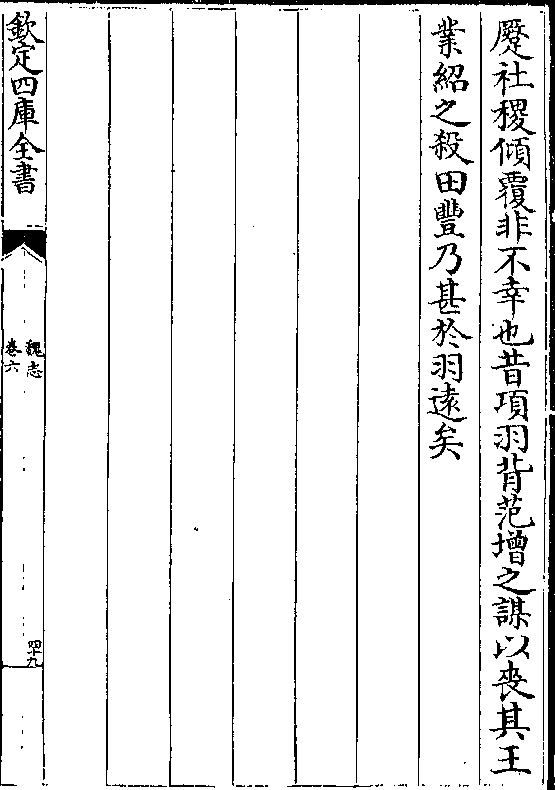 蹷社稷傾覆非不幸也昔項羽背范增之謀以喪其王
業紹之殺田豐乃甚於羽遠矣
欽定四庫全書
魏志
卷六
四十九